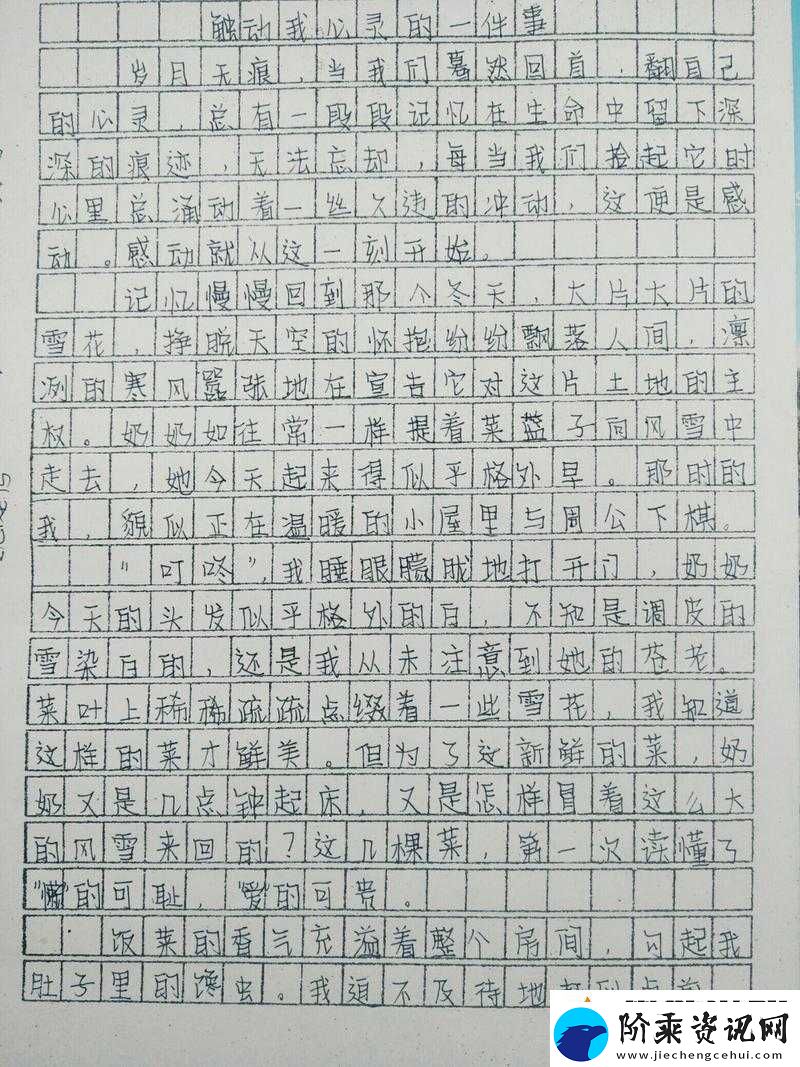 触动我心灵的一件事
岁月无痕，当我们蓦然回首，翻自己
的心灵，总有一段段记忆在生命中留下深
深的痕迹，无法忘却，每当我们捡起它时
心里总涌动着一丝久违的冲动，这便是感
动。感动就从这一刻开始。
记忆慢慢回到那个冬天，大片大片的
雪花，挣脱天空的怀抱纷纷飘落人间，凛
冽的寒风嚣张地在宣告它对这片土地的主
权。奶奶如往常一样提着菜篮子向风雪中
走去，她今天起来得似乎格外早。那时的
我，貌似正在温暖的小屋里与周公下棋。
“叮咚”，我睡眼朦胧地打开门，奶奶
今天的头发似乎格外的白，不知是调皮的
雪染白的，还是我从未注意到她的苍老。
菜叶上稀稀疏疏点缀着一些雪花，我知道
这样的菜才鲜美。但为了这新鲜的菜，奶
奶又是几点钟起床，又是怎样冒着这么大
的风雪来回的？这几棵菜，第一次读懂了
“懒”的可耻，“爱”的可贵。
饭菜的香气充溢着整个房间，勾起我
肚子里的馋虫。我迫不及待地
阶乘资讯网
www.jiechengcehui.com